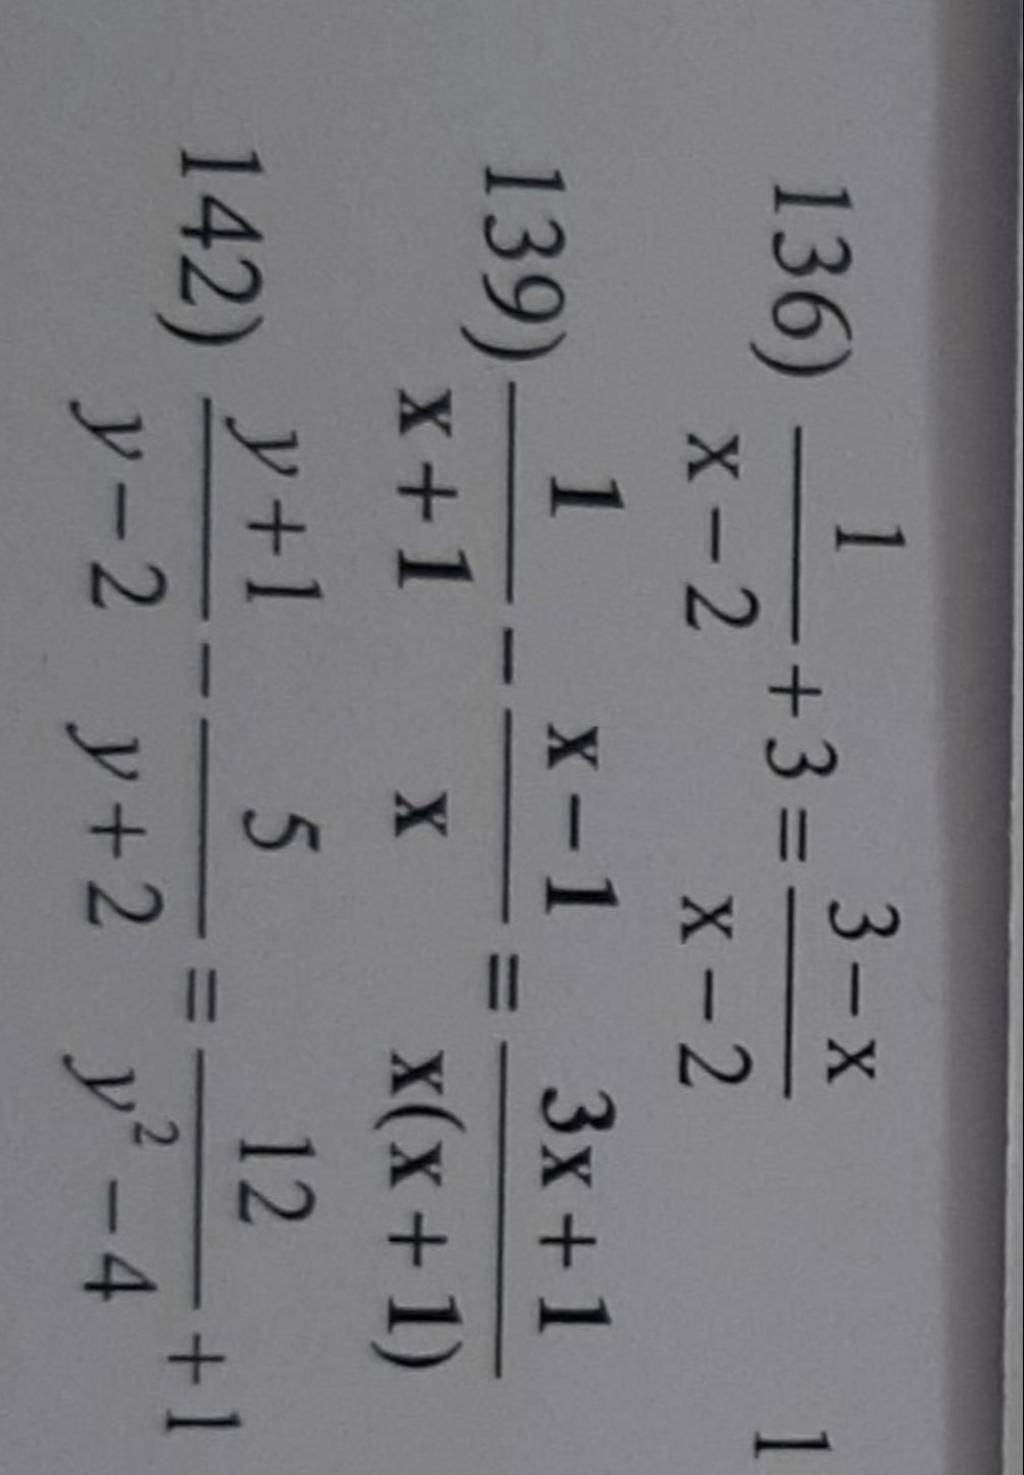 136) \frac{1}{x-2} + 3 = \frac{3-x}{x-2}
1
139) \frac{1}{x+1} - \frac{x-1}{x} = \frac{3x+1}{x(x+1)}
142) \frac{y+1}{y-2} - \frac{5}{y+2} = \frac{12}{y^2-4} + 1